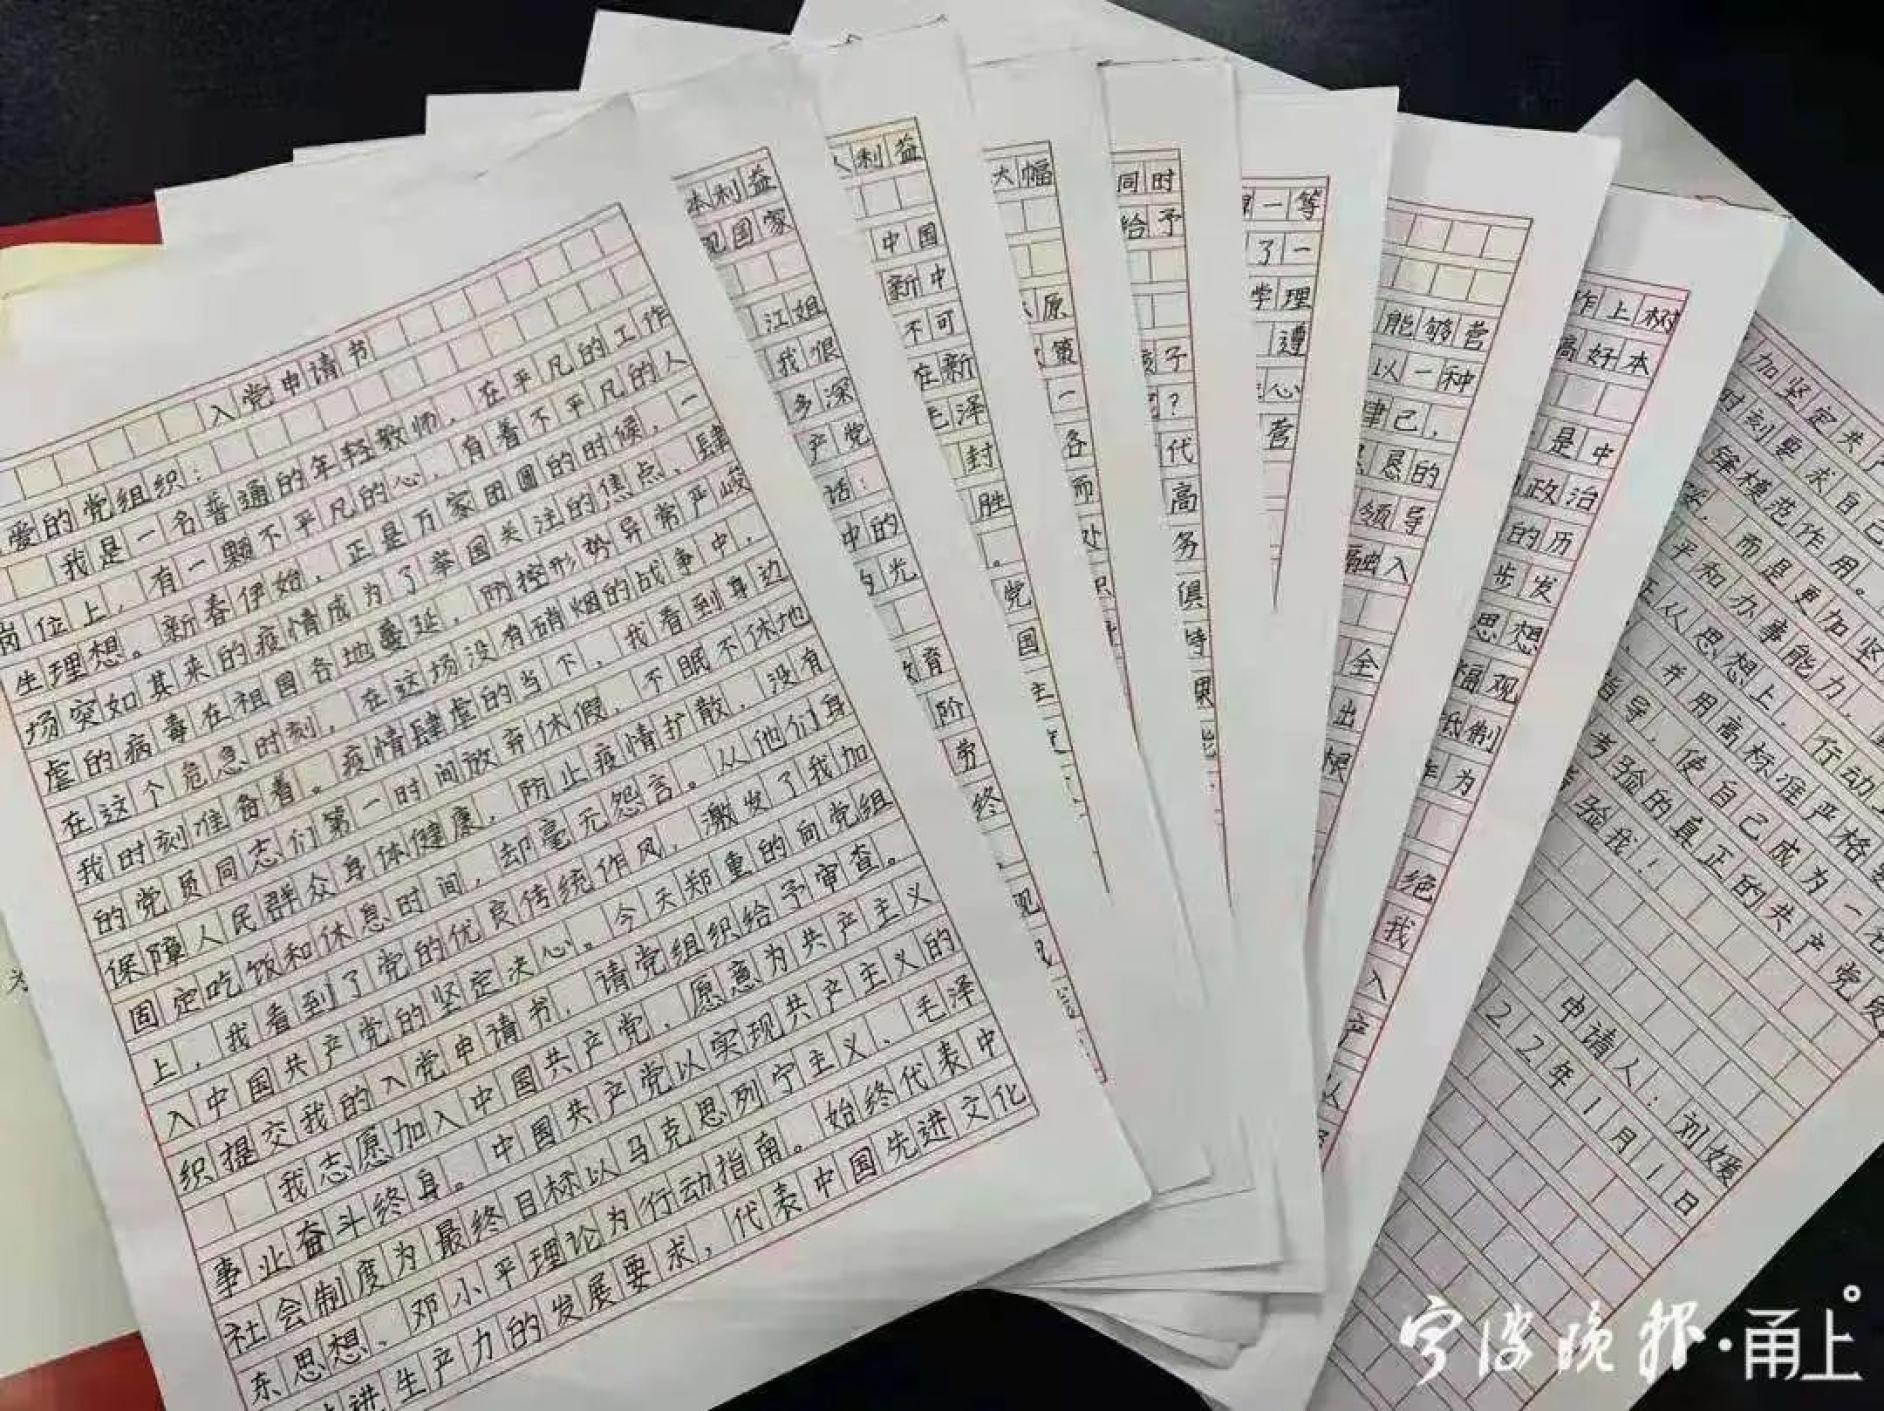 入党申请书
爱的党组织：
我是一名普通的年轻教师，在平凡的工作
岗位上，有一颗不平凡的心，有着不平凡的人
生理想。新春伊始，正是万家团圆的时候，一
场突如其来的疫情成为了举国关注的焦点，肆
虐的病毒在祖国各地蔓延，防控形势异常严峻
在这个危急时刻，在这场没有硝烟的战争中，
我时刻准备着。疫情肆虐的当下，我看到身边
的党员同志们第一时间放弃休假，不眠不休地
保障人民群众身体健康，防止疫情扩散，没有
固定吃饭和休息时间，却毫无怨言。从他们身
上，我看到了党的优良传统作风，激发了我加
入中国共产党的坚定决心。今天郑重的向党组
织提交我的入党申请书，请党组织给予审查。
我志愿加入中国共产党，愿意为共产主义
事业奋斗终身。中国共产党以实现共产主义的
社会制度为最终目标以马克思列宁主义、毛泽
东思想、邓小平理论为行动指南。始终代表中
进生产力的发展要求，代表中国先进文化
本利益
国家
江姐
我恨
多深
产党
话：
中的
光
育
阶
劳
终
利益
中国
新中
不可
在新
毛泽
封
胜
。
党
国
主
大幅
原
策
一
各
而
处
同时
给予
予
？
代
高
务
俱
特
果
一等
了一
学理
遵
心
营
能够营
以一种
律己，
恳的
领导
融入
全
出
根
作上树
高好本
是中
政治
的历
步发
思想
福观
抵制
作为
绝
我
入
产
从
加坚定共产
时刻要求自己
锋模范作用。
，而是更加坚
平和办事能力，
从思想上，行动上
，并用高标准严格要
指导，使自己成为一名
考验的真正的共产党员
验我！
申请人：刘媛
22年1月1日
宁波晚报·甬上